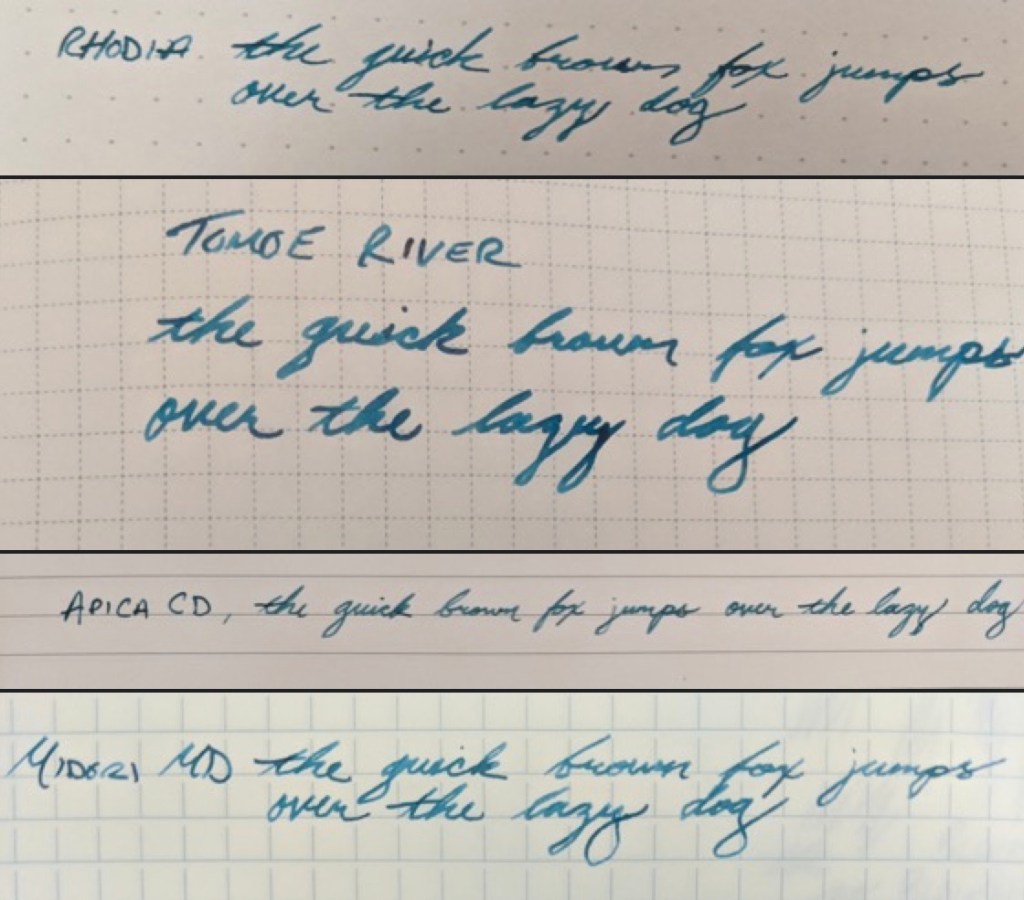 RHODIA the quick brown fox jumps
over the lazy dog
TOMOE RIVER
the quick brown fox jumps
over the lazy dog
APICA CD, the quick brown fox jumps over the lazy dog
MIDORI MD the quick brown fox jumps
over the lazy dog